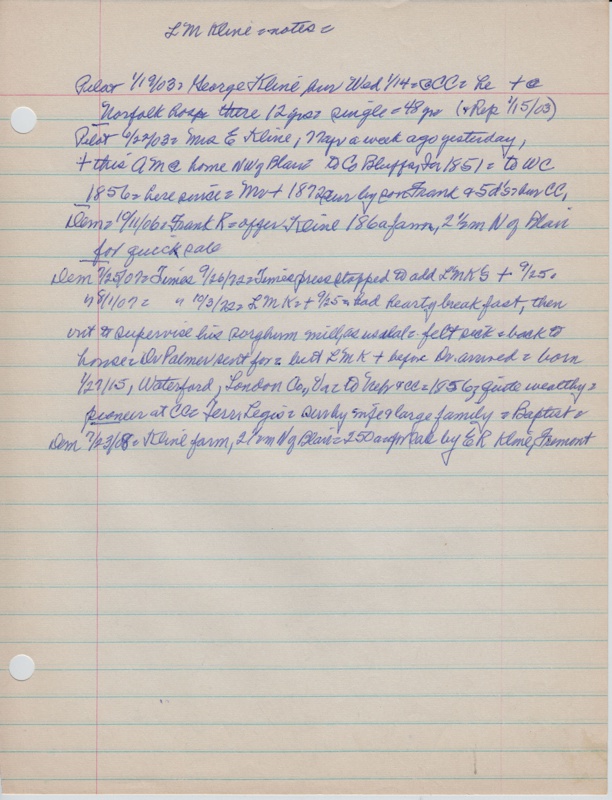 L M Kline = notes =
Pilot 1/19/03 = George Kline bur Wed 1/14 = @CC = he + @
Norfolk hosp there 12 yrs = single = 48 yr (+ Rep 1/15/03)
Pilot = Mrs E Kline, a week ago yesterday,
+ this AM @ home NW of Blair = to Co Bluffs, Ia 1851 = to WC
1856 = here since = Mr + 1872 = sur by son Frank & 5 d's = bur CC,
Dem = 10/11/06 = Frank R = offer Kline 186 a farm, 2 1/2 m N of Blair
for quick sale
Dem 7/25/07 = Times 9/26/72 = Times press stopped to add LMK's + 9/25 =
" 8/1/07 = " 10/3/72 = L M K = + 9/25 = had hearty breakfast, then
out to supervise his sorghum mill, as usual = felt sick = back to
house = Dr Palmer sent for = but L M K + before Dr. arrived = born
1/27/15, Waterford, Loudon Co., Va = to Neb & CC = 1856 = quite wealthy =
pioneer at CC = Terr Legis = sur by wife & large family = Baptist =
Dem 7/23/08 = Kline farm, 2 1/2 m N of Blair = 250 a for sale by E R Kline, Fremont